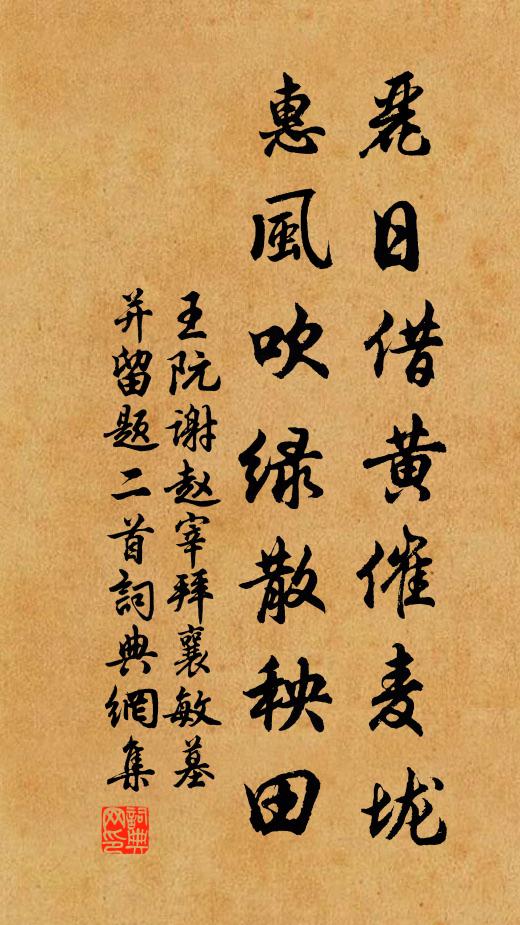 麗日借黄催麦垅
惠風吹绿散秧田
王阮谢赵宰拜襄敏墓
并留题二首詞典網集
詞典网印